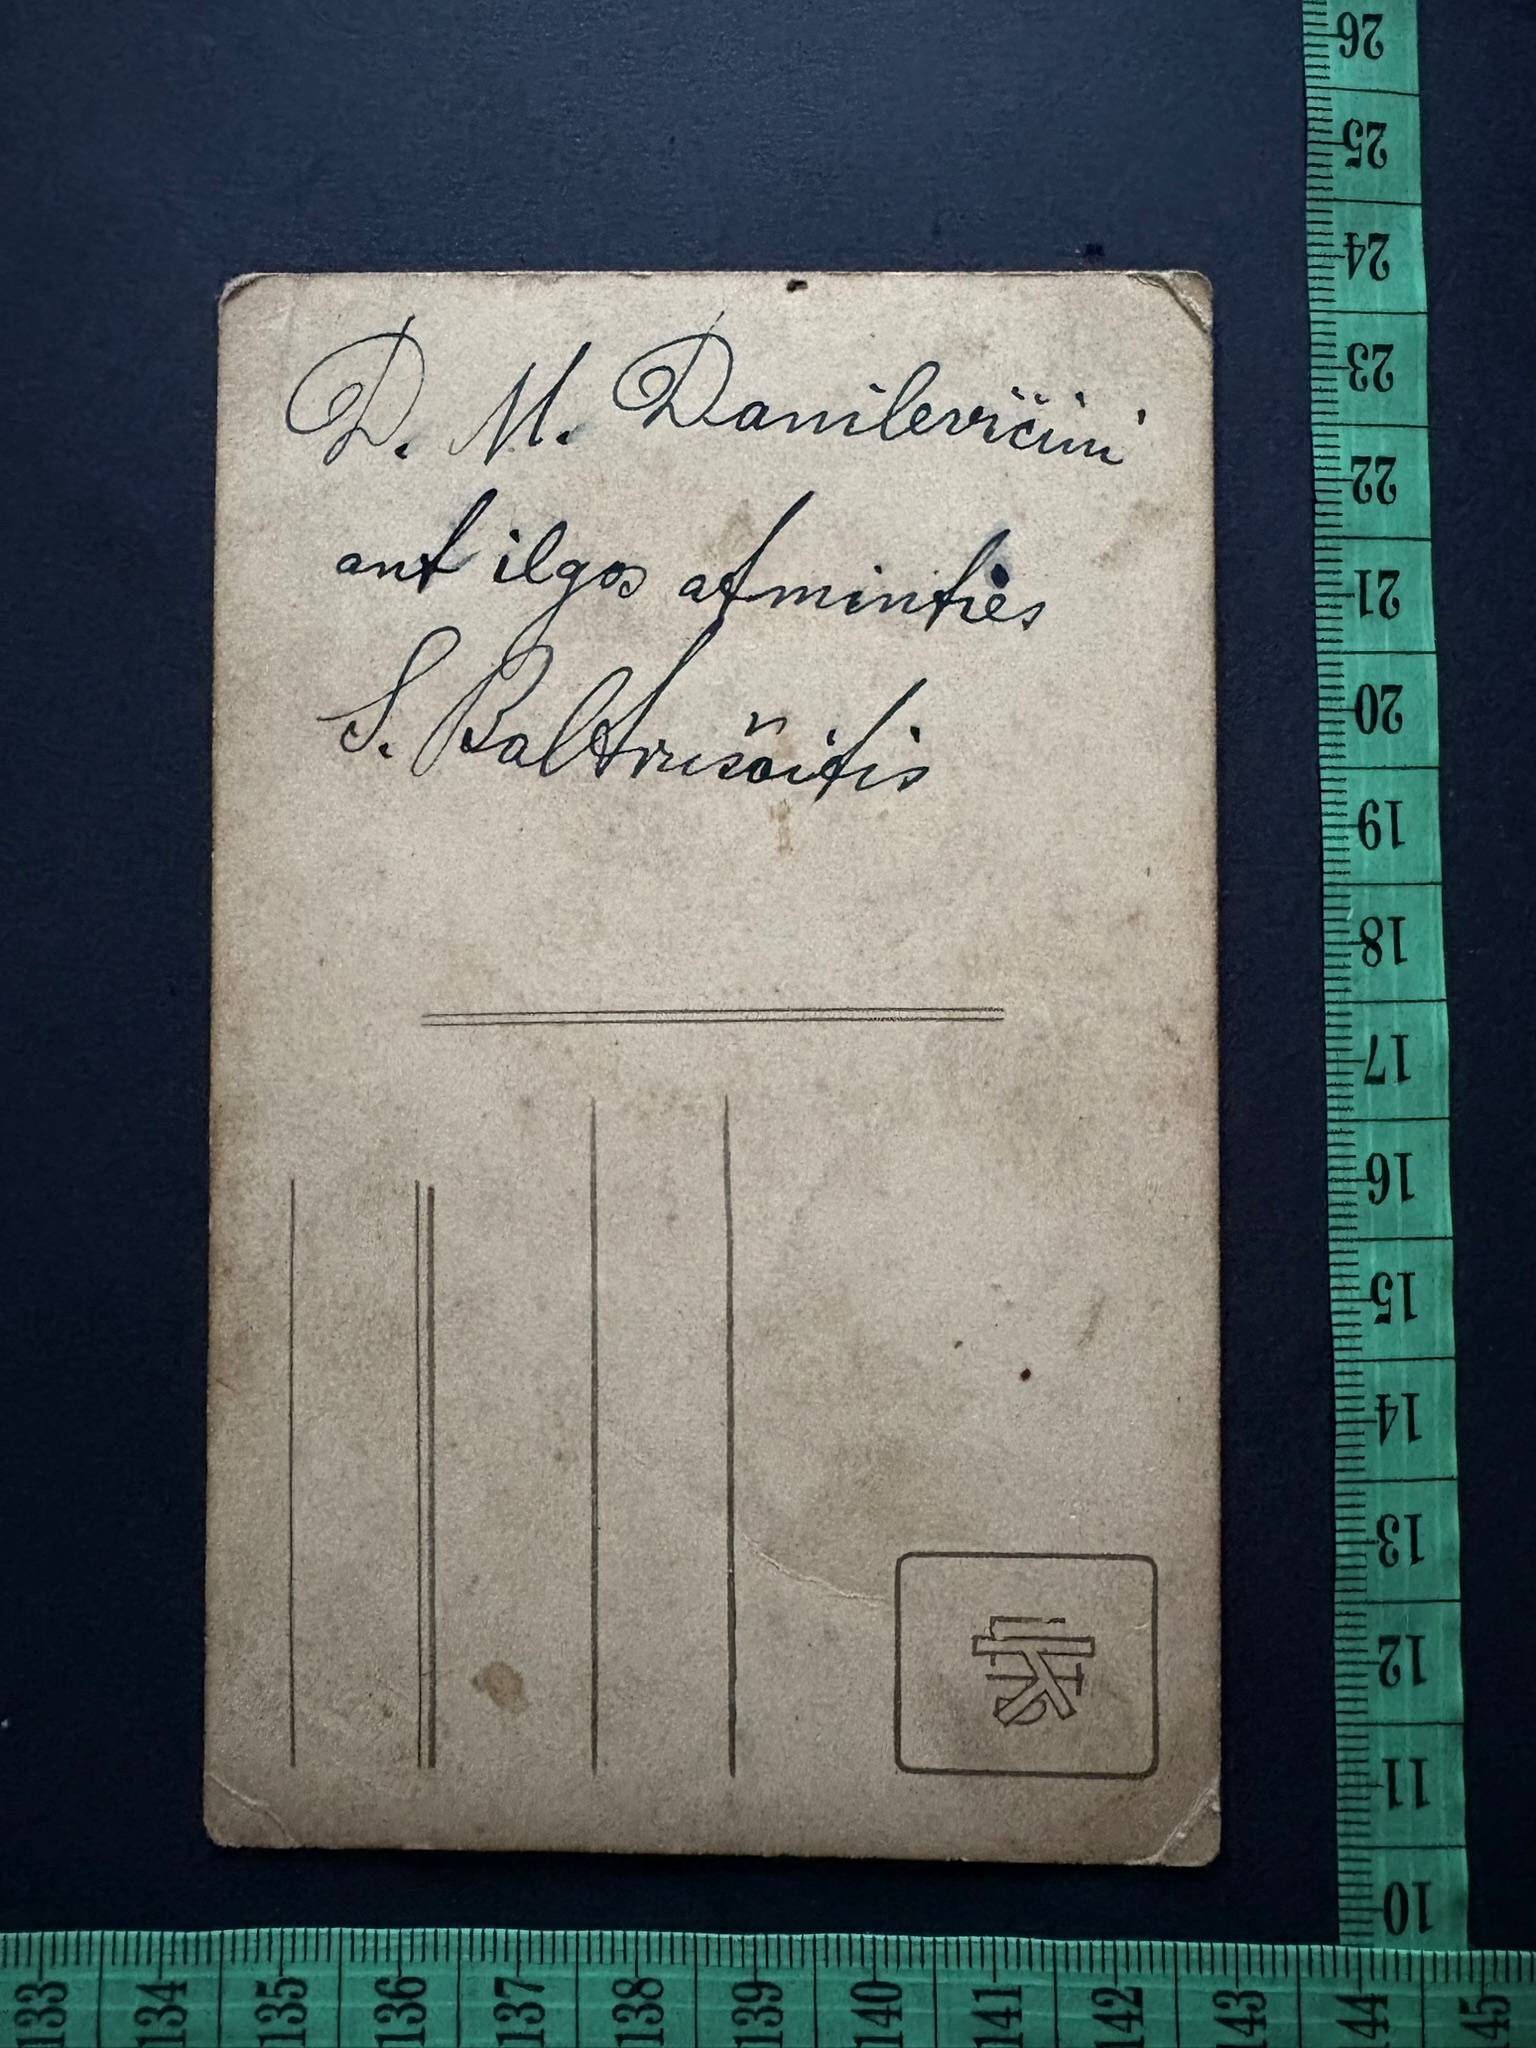 D. M. Danilevičini
ant ilgos atminties
S. Baltrušaitis
26
25
24
23
22
21
20
19
18
17
16
15
14
13
12
11
10
133 134 135 136 137 138 139 140 141 142 143 144 145